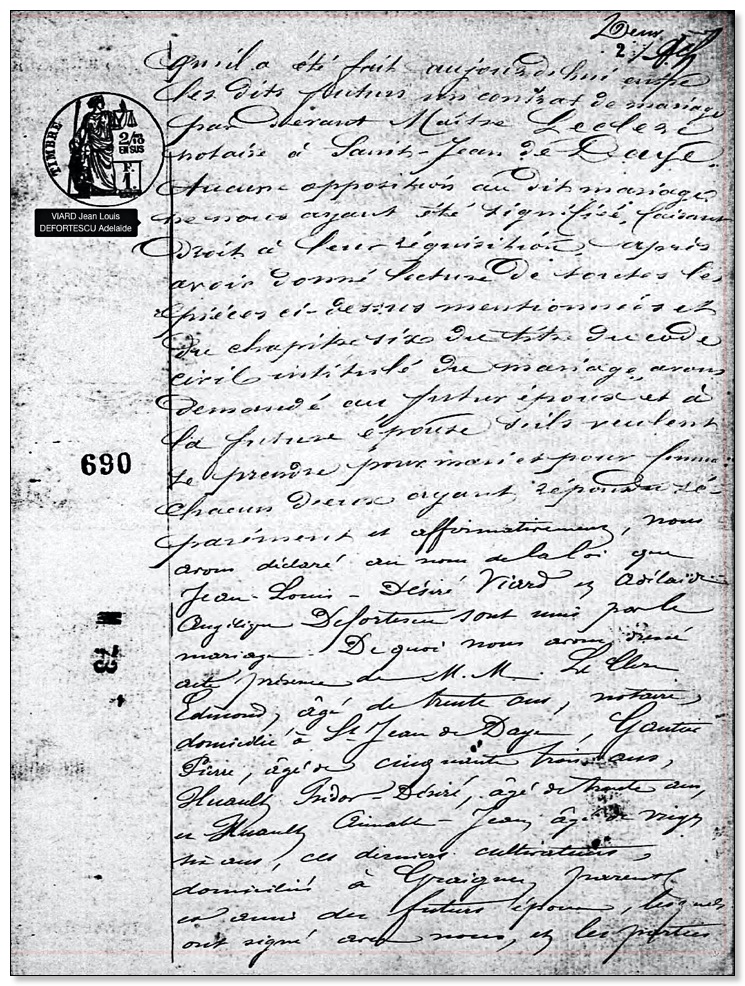 Deux
2
Qu'il a été fait aujourd'hui entre
les dits futurs un contrat de mariage
par devant Maître Leclerc
notaire à Saint-Jean de Daye.
Aucune opposition au dit mariage
ne nous ayant été signifiée, faisant
droit à leur réquisition, après
avoir donné lecture de toutes les
pièces ci-dessus mentionnées et
du chapitre six du titre du code
civil intitulé du mariage, avons
demandé au futur époux et à
la future épouse s'ils veulent
se prendre pour mari et pour femme
chacun d'eux ayant répondu sé-
parément et affirmativement, nous
avons déclaré au nom de la loi que
Jean-Louis-Désiré Viard et Adélaïde
Angélique Defortescu sont unis par le
mariage. De quoi nous avons dressé
acte présence de M.M. Le Clerc
Edmond, âgé de trente ans, notaire,
domicilié à St Jean de Daye,
Pierre, âgé de cinquante trois ans,
Huault Isidor-Désiré, âgé de trente ans,
et Huault Aimable-Jean âgé de vingt
six ans, ces derniers cultivateurs,
domiciliés à Graignes, parents
et amis des futurs époux, lesquels
ont signé avec nous, et les parties
TIMBRE
2/10
EN SUS
F.
1.
VIARD Jean Louis
DEFORTESCU Adelaïde
690